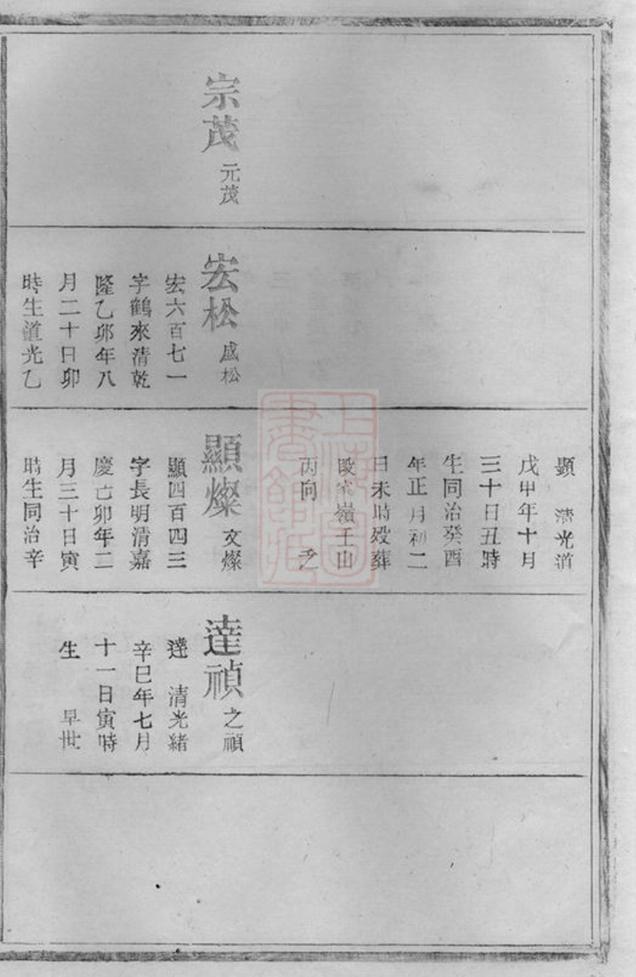 宗茂 元茂
宏松 盛松
宏六百七一
字鶴來清乾
隆乙卯年八
月二十日卯
時生道光乙
顯 清光道
戊申年十月
三十日丑時
生同治癸酉
年正月初二
日未時歿葬
嶺王山
丙向
顯燦 文燦
顯四百四三
字長明清嘉
慶 卯年二
月三十日寅
時生同治辛
達禎 之禎
達 清光緒
辛巳年七月
十一日寅時
生 早世
上海圖書館藏